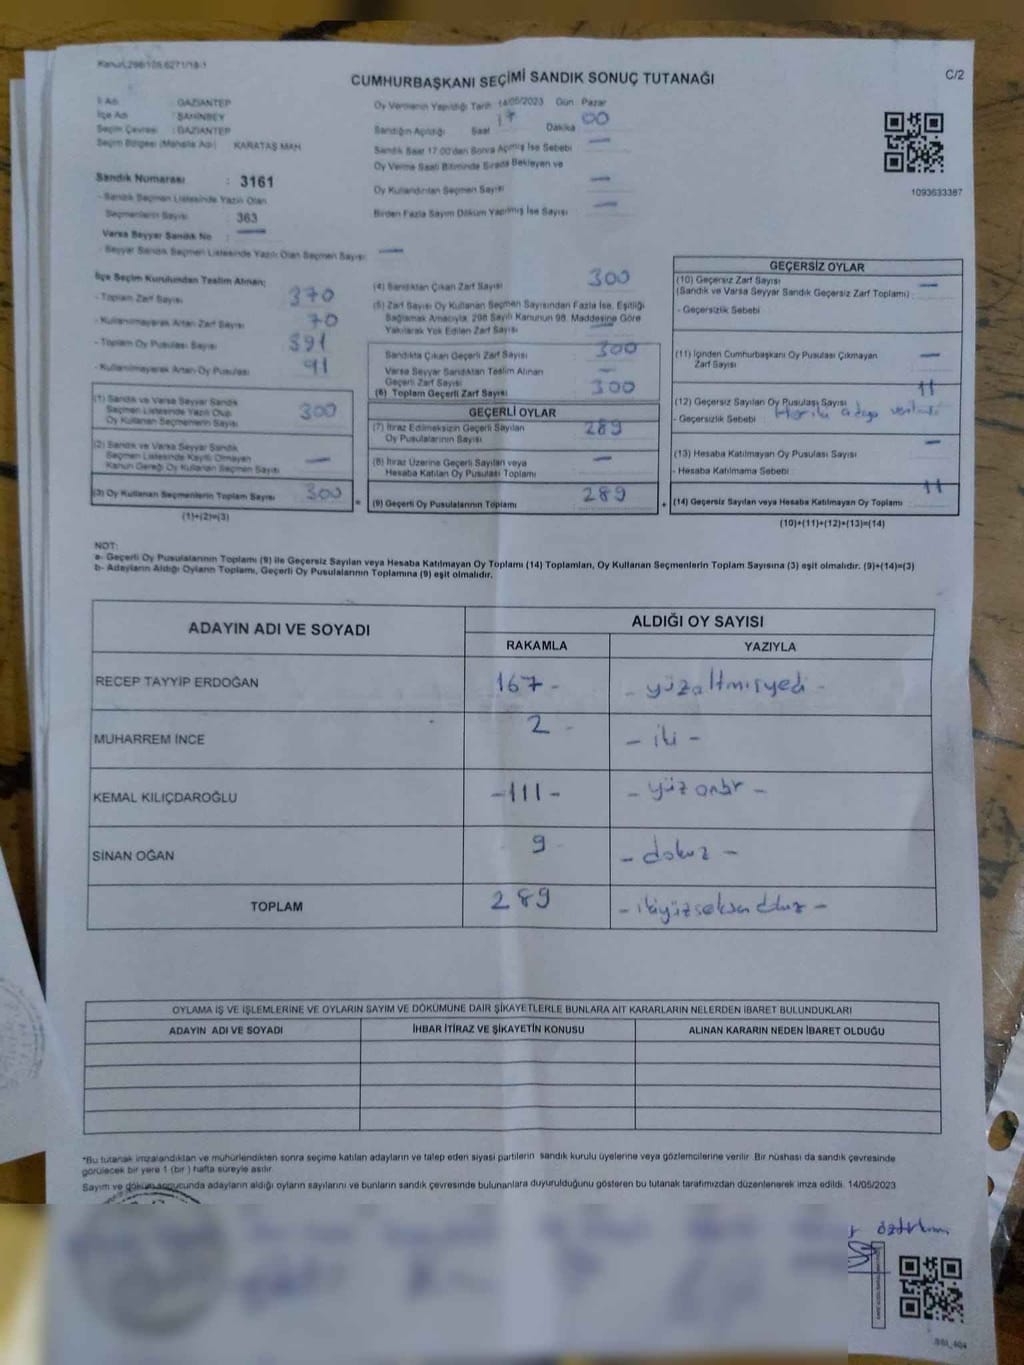 Kanun:298/105,6271/18-1
C/2
CUMHURBAŞKANI SEÇİMİ SANDIK SONUÇ TUTANAĞI
İl Adı : GAZİANTEP
İlçe Adı : ŞAHİNBEY
Seçim Çevresi : GAZİANTEP
Seçim Bölgesi (Mahalle Adı) KARATAŞ MAH
Sandık Numarası : 3161
- Sandık Seçmen Listesinde Yazılı Olan
Seçmenlerin Sayısı : 363
Varsa Seyyar Sandık No : —
- Seyyar Sandık Seçmen Listesinde Yazılı Olan Seçmen Sayısı: —
Oy Vermenin Yapıldığı Tarih 14/05/2023 Gün Pazar
Sandığın Açıldığı Saat 17 Dakika 00
Sandık Saat 17:00'den Sonra Açılmış İse Sebebi —
Oy Verme Saati Bitiminde Sırada Bekleyen ve
Oy Kullandırılan Seçmen Sayısı —
Birden Fazla Sayım Döküm Yapılmış İse Sayısı —
1093633387
İlçe Seçim Kurulundan Teslim Alınan;
- Toplam Zarf Sayısı 370
- Kullanılmayarak Artan Zarf Sayısı 70
- Toplam Oy Pusulası Sayısı 391
- Kullanılmayarak Artan Oy Pusulası 91
(1) Sandık ve Varsa Seyyar Sandık
Seçmen Listesinde Yazılı Olup
Oy Kullanan Seçmenlerin Sayısı 300
(2) Sandık ve Varsa Seyyar Sandık
Seçmen Listesinde Kayıtlı Olmayan
Kanun Gereği Oy Kullanan Seçmen Sayısı —
(3) Oy Kullanan Seçmenlerin Toplam Sayısı 300
(1)+(2)=(3)
=
(4) Sandıktan Çıkan Zarf Sayısı 300
(5) Zarf Sayısı Oy Kullanan Seçmen Sayısından Fazla İse, Eşitliği
Sağlamak Amacıyla, 298 Sayılı Kanunun 98. Maddesine Göre
Yakılarak Yok Edilen Zarf Sayısı —
Sandıkta Çıkan Geçerli Zarf Sayısı 300
Varsa Seyyar Sandıktan Teslim Alınan
Geçerli Zarf Sayısı —
(6) Toplam Geçerli Zarf Sayısı 300
GEÇERLİ OYLAR
(7) İtiraz Edilmeksizin Geçerli Sayılan
Oy Pusulalarının Sayısı 289
(8) İtiraz Üzerine Geçerli Sayılan veya
Hesaba Katılan Oy Pusulası Toplamı —
(9) Geçerli Oy Pusulalarının Toplamı 289
+
GEÇERSİZ OYLAR
(10) Geçersiz Zarf Sayısı
(Sandık ve Varsa Seyyar Sandık Geçersiz Zarf Toplamı) : —
- Geçersizlik Sebebi :
(11) İçinden Cumhurbaşkanı Oy Pusulası Çıkmayan
Zarf Sayısı —
(12) Geçersiz Sayılan Oy Pusulası Sayısı 11
- Geçersizlik Sebebi adaya
(13) Hesaba Katılmayan Oy Pusulası Sayısı —
- Hesaba Katılmama Sebebi :
(14) Geçersiz Sayılan veya Hesaba Katılmayan Oy Toplamı 11
(10)+(11)+(12)+(13)=(14)
NOT:
a- Geçerli Oy Pusulalarının Toplamı (9) ile Geçersiz Sayılan veya Hesaba Katılmayan Oy Toplamı (14) Toplamları, Oy Kullanan Seçmenlerin Toplam Sayısına (3) eşit olmalıdır. (9)+(14)=(3)
b- Adayların Aldığı Oyların Toplamı, Geçerli Oy Pusulalarının Toplamına (9) eşit olmalıdır.
ADAYIN ADI VE SOYADI
ALDIĞI OY SAYISI
RAKAMLA YAZIYLA
RECEP TAYYİP ERDOĞAN 167- - yüzaltmışyedi -
MUHARREM İNCE 2 - - iki -
KEMAL KILIÇDAROĞLU -111- - yüz onbir -
SİNAN OĞAN 9 - dokuz -
TOPLAM 289 - ikiyüzseksendokuz -
OYLAMA İŞ VE İŞLEMLERİNE VE OYLARIN SAYIM VE DÖKÜMÜNE DAİR ŞİKAYETLERLE BUNLARA AİT KARARLARIN NELERDEN İBARET BULUNDUKLARI
ADAYIN ADI VE SOYADI İHBAR İTİRAZ VE ŞİKAYETİN KONUSU ALINAN KARARIN NEDEN İBARET OLDUĞU
*Bu tutanak imzalandıktan ve mühürlendikten sonra seçime katılan adayların ve talep eden siyasi partilerin sandık kurulu üyelerine veya gözlemcilerine verilir. Bir nüshası da sandık çevresinde
görülecek bir yere 1 (bir ) hafta süreyle asılır.
Sayım ve döküm sonucunda adayların aldığı oyların sayılarını ve bunların sandık çevresinde bulunanlara duyurulduğunu gösteren bu tutanak tarafımızdan düzenlenerek imza edildi. 14/05/2023